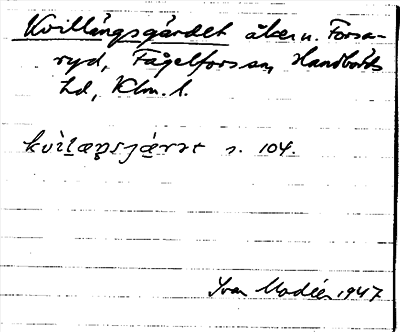 Kvillängsgärdet åker u. Forsa-
ryd, Fågelfors sn, Handbörds
hd, Klm. l.
s. 104.
Ivar Modéer 1947